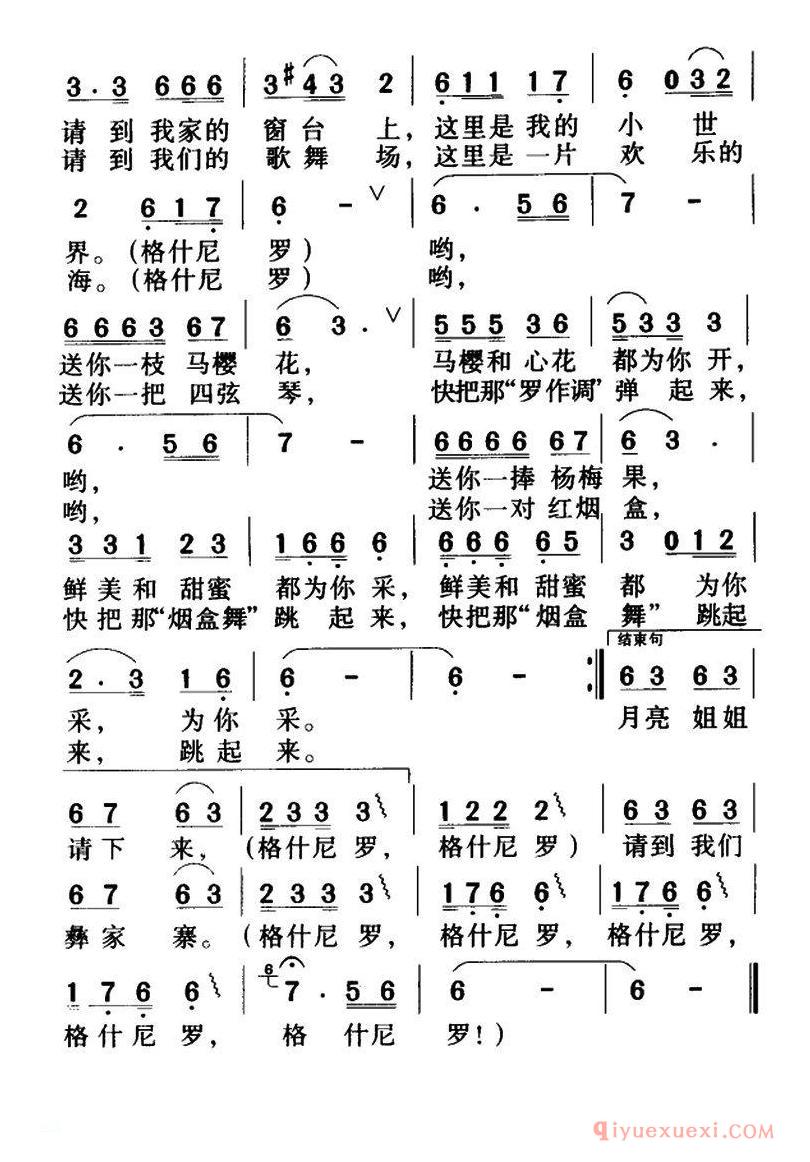 3·3 666 | 3#43 2 | 611 17 | 6 032 |
请到我家的 窗台 上，这里是我的 小 世
请到我们的 歌舞 场，这里是一片 欢 乐的
2 617 | 6 - ∨ | 6·56 | 7 - |
界。（格什尼 罗） 哟，
海。（格什尼 罗） 哟，
6663 67 | 6 3· ∨ | 555 36 | 533 3 |
送你一枝 马樱 花， 马樱和 心花 都为你 开，
送你一把 四弦 琴， 快把那“罗作调”弹 起 来，
6·56 | 7 - | 6666 67 | 6 3· |
哟， 送你一捧 杨梅 果，
哟， 送你一对 红烟 盒，
331 23 | 166 6 | 566 65 | 3 012 |
鲜美和 甜蜜 都为你 采， 鲜美和 甜蜜 都 为你
快把那“烟盒舞”跳 起 来， 快把那“烟盒 舞” 跳起
结束句
2·3 16 | 6 - | 6 - :‖ 63 63 |
采， 为你 采。 月亮 姐姐
来， 跳起 来。
67 63 | 233 3 | 122 2 | 63 63 |
请下 来，（格什尼 罗， 格什尼 罗）请到 我们
67 63 | 233 3 | 176 6 | 176 6 |
彝家 寨。（格什尼 罗， 格什尼 罗， 格什尼 罗，
176 6 | 6 7·56 | 6 - | 6 - ‖
格什尼 罗， 格 什尼 罗！）
Qiyuexuexi.COM